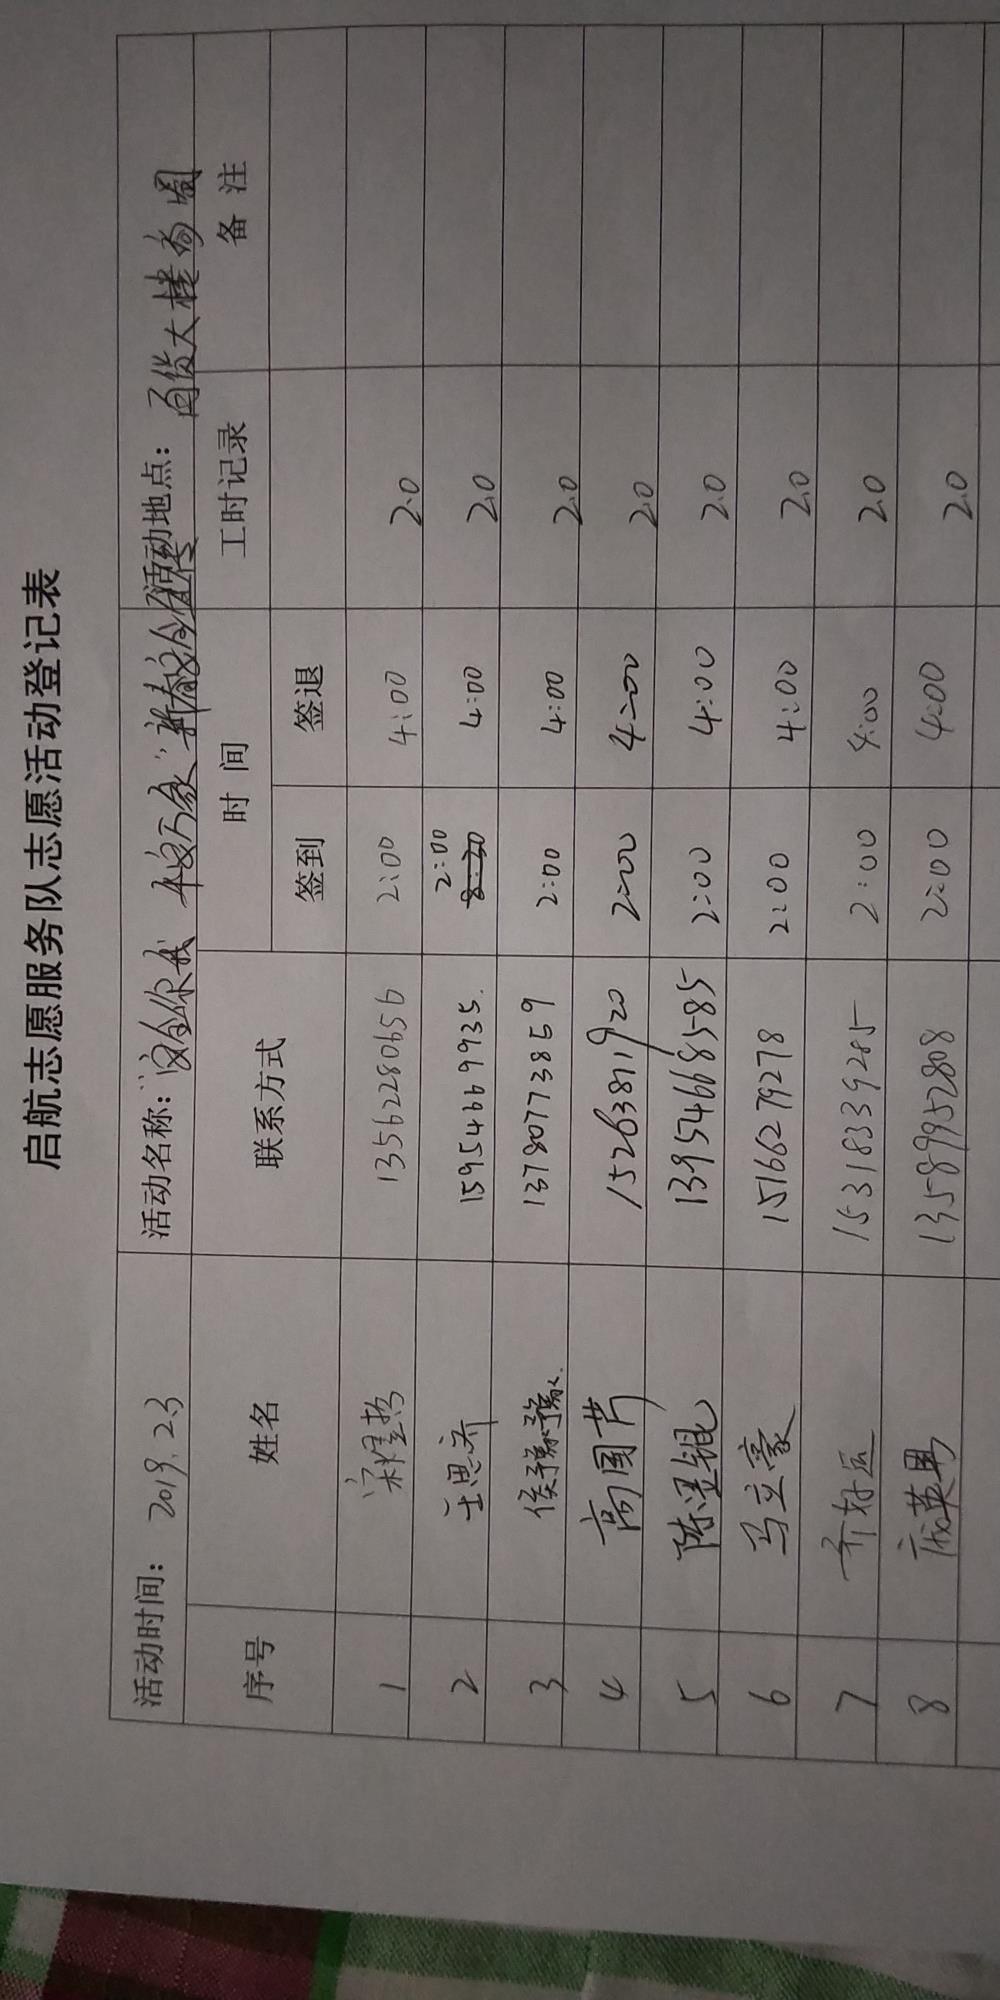 启航志愿服务队志愿活动登记表
活动时间： 2019.2.3 活动名称：“安全你我 幸福万家”新春安全宣传 活动地点： 百货大楼周围
序号 姓名 联系方式 时 间 工时记录 备 注
签到 签退
1 宋 13562280656 2:00 4:00 2.0
2 王思齐 15954669935. 2:00 4:00 2.0
3 侯豫豫 13780773859 2:00 4:00 2.0
4 高国芹 15263811920 2:00 4:00 2.0
5 陈锟 13954668585 2:00 4:00 2.0
6 马立豪 15166279278 2:00 4:00 2.0
7 乔好运 15318339285 2:00 4:00 2.0
8 英男 13589952808 2:00 4:00 2.0